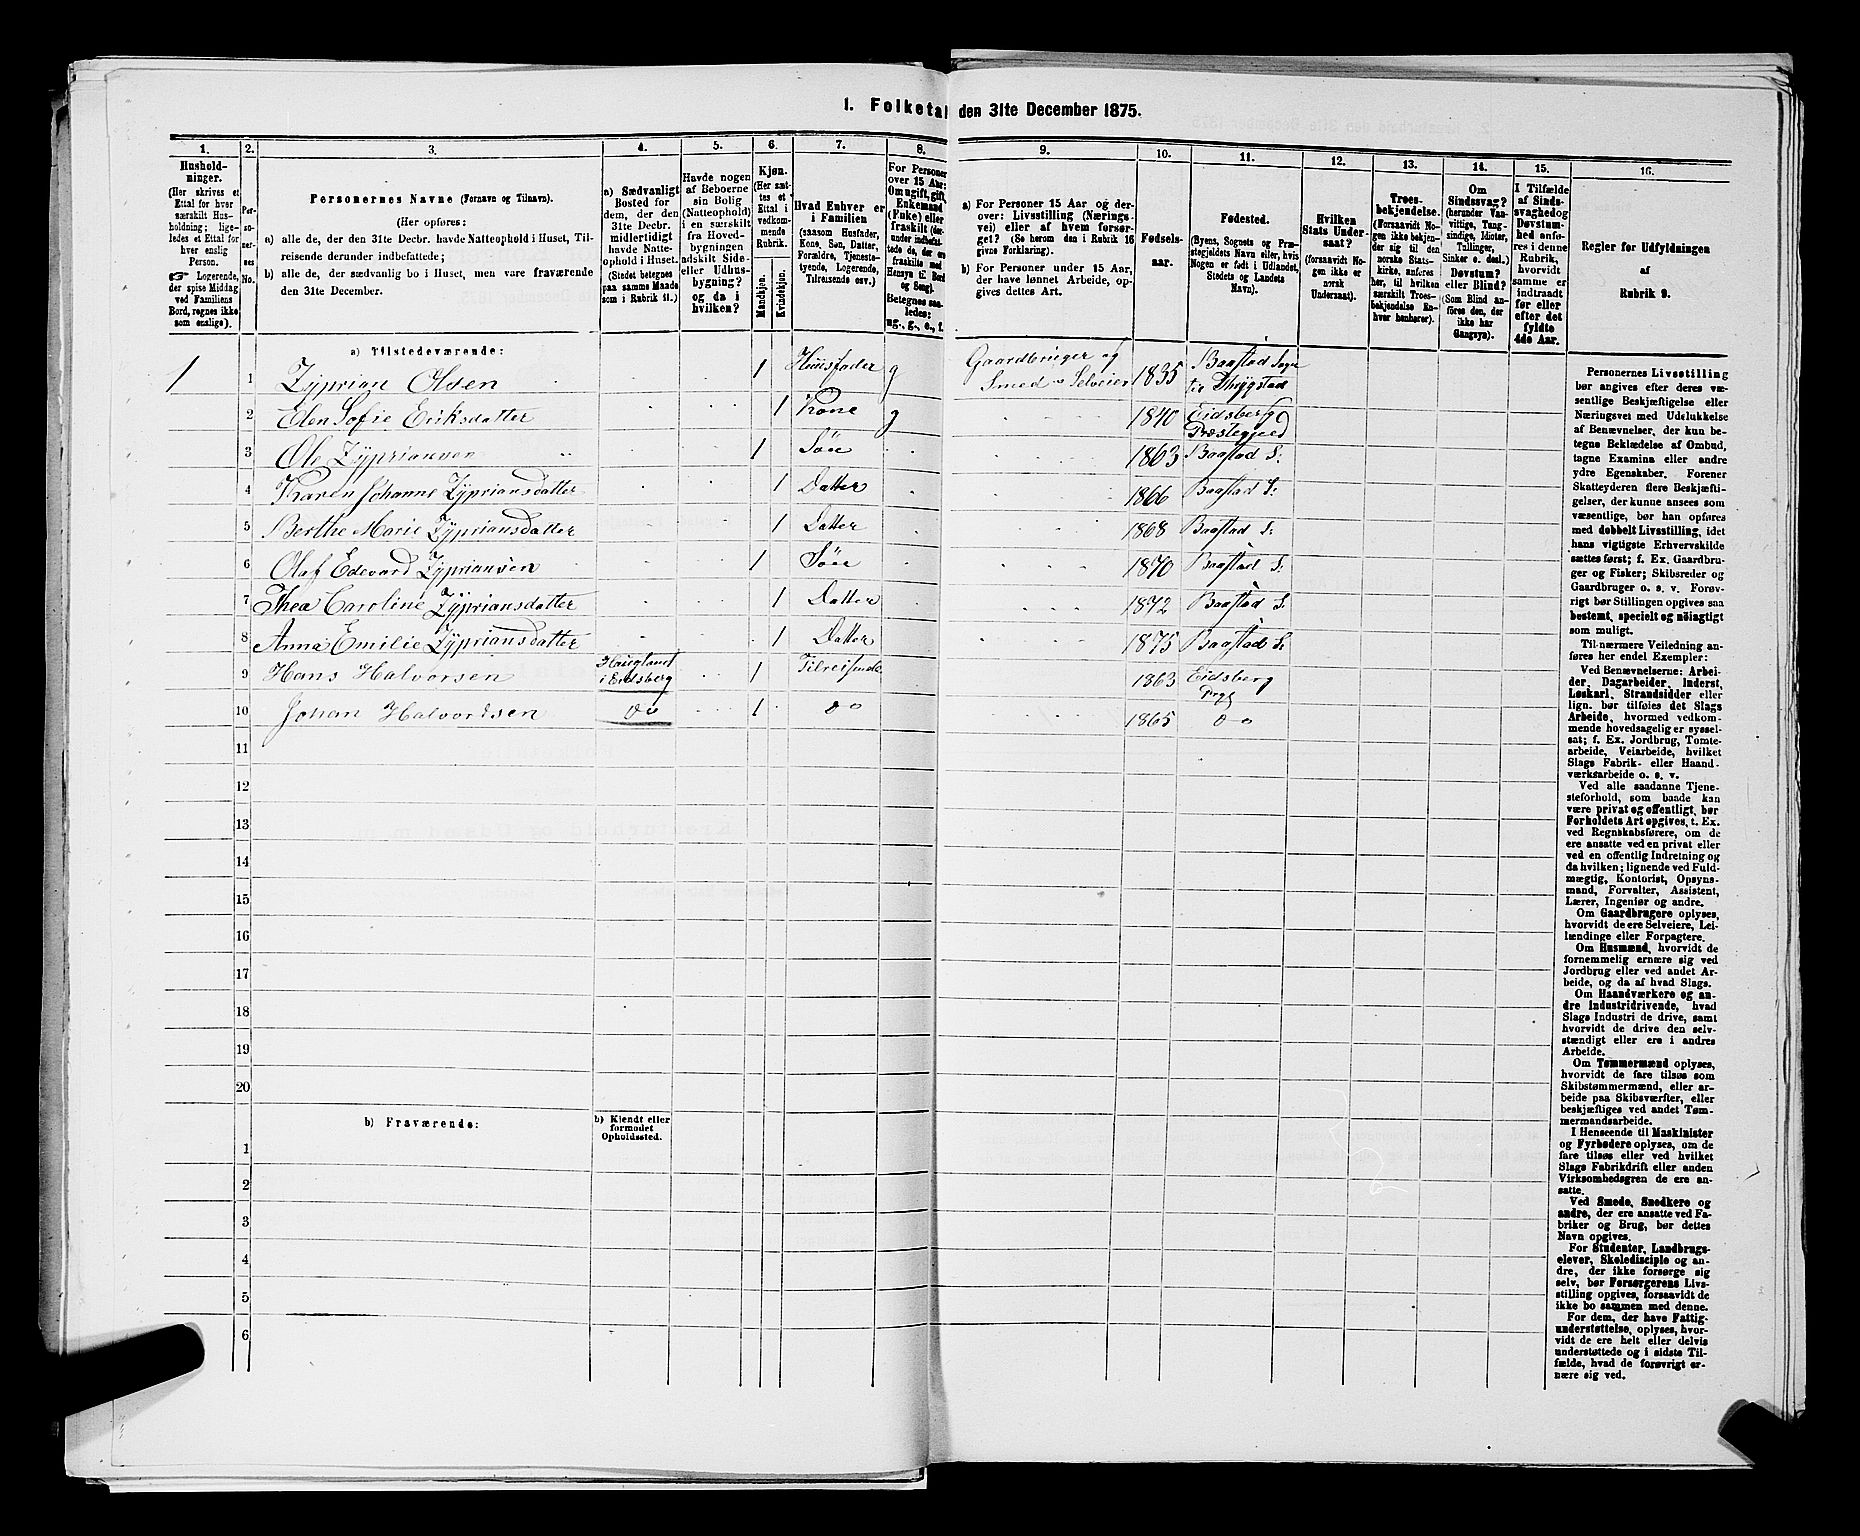 1. Folketal den 31te December 1875.
1. 2. 3. 4. 5. 6. 7. 8. 9. 10. 11. 12. 13. 14. 15. 16.
Hushold-
ninger.
(Her skrives et
Ettal for hver
særskilt Hus-
holdning; lige-
ledes et Ettal for
hver enslig
Person.
☞ Logerende,
der spise Middag
ved Familiens
Bord, regnes ikke
som enslige).
Per-
soner-
nes
No.
Personernes Navne (Fornavn og Tilnavn).
(Her opføres:
a) alle de, der den 31te Decbr. havde Natteophold i Huset, Til-
reisende derunder indbefattede;
b) alle de, der sædvanlig bo i Huset, men vare fraværende
den 31te December.
a) Sædvanligt
Bosted for
dem, der den
31te Decbr.
midlertidigt
havde Natte-
ophold i Huset.
(Stedet betegnes
paa samme Maade
som i Rubrik 11.)
Havde nogen
af Beboerne
sin Bolig
(Natteophold)
i en særskilt
fra Hoved-
bygningen
adskilt Side-
eller Udhus-
bygning?
og da i
hvilken?
Kjøn.
(Her sæt-
tes et
Ettal i
vedkom-
mende
Rubrik.
Mandkjøn.
Kvindekjøn.
Hvad Enhver er
i Familien
(saasom Husfader,
Kone, Søn, Datter,
Forældre, Tjeneste-
tyende, Logerende,
Tilreisende osv.)
For Personer
over 15 Aar:
Om ugift, gift,
Enkemand
(Enke) eller
fraskilt (der-
under indbefat-
tede de, der ere
fraskilte med
Hensyn til Bord
og Seng).
Betegnes saa-
ledes:
ug., g., e., f.
a) For Personer 15 Aar og der-
over: Livsstilling (Nærings-
vei) eller af hvem forsør-
get? (Se herom den i Rubrik 16
givne Forklaring).
b) For Personer under 15 Aar,
der have lønnet Arbeide, op-
gives dettes Art.
Fødsels-
aar.
Fødested.
(Byens, Sognets og Præ-
stegjeldets Navn eller, hvis
Nogen er født i Udlandet,
Stedets og Landets
Navn).
Hvilken
Stats Under-
saat?
(forsaavidt No-
gen ikke er
norsk
Undersaat).
Troes-
bekjendelse.
(Forsaavidt No-
gen ikke bekjen-
der sig til den
norske Stats-
kirke, anføres
her, til hvilken
særskilt Troes-
bekjendelse En-
hver henhører).
Om
Sindssvag?
(herunder Van-
vittige, Tung-
sindige, Idioter,
Tullinger,
Sinker o. desl.)
Døvstum?
eller Blind?
(Som Blind an-
føres den, der
ikke har
Gangsyn).
I Tilfælde
af Sinds-
svaghed og
Døvstum-
hed anfø-
res i denne
Rubrik,
hvorvidt
samme er
indtraadt
før eller
efter det
fyldte
4de Aar.
Regler for Udfyldningen
af
Rubrik 9.
a) Tilstedeværende:
1 1 Zyprian Olsen 1 Huusfader g Gaardbruger og Smed Selveier 1835 Baastad Sogn til Thrygstad
2 Elen Sofie Eriksdatter 1 Kone g 1840 Eidsberg Præstegjeld
3 Ole Zypriansen 1 Søn 1863 Baastad S:
4 Karen Johanne Zypriansdatter 1 Datter 1866 Baastad S:
5 Berthe Marie Zypriansdatter 1 Datter 1868 Baastad S:
6 Olaf Edevard Zypriansen 1 Søn 1870 Baastad S:
7 Thea Caroline Zypriansdatter 1 Datter 1872 Baastad S.
8 Anna Emilie Zypriansdatter 1 Datter 1875 Baastad S:
9 Hans Halvorsen Haugland i Eidsberg 1 Tilreisende 1863 Eidsberg Prgj
10 Johan Halvordsen do 1 do 1865 do
11
12
13
14
15
16
17
18
19
20
b) Fraværende:
b) Kjendt eller
formodet
Opholdssted.
1
2
3
4
5
6
Personernes Livsstilling
bør angives efter deres væ-
sentlige Beskjæftigelse eller
Næringsvei med Udelukkelse
af Benævnelser, der kun be-
tegne Beklædelse af Ombud,
tagne Examina eller andre
ydre Egenskaber. Forener
Skatteyderen flere Beskjæfti-
gelser, der kunne ansees som
væsentlige, bør han opføres
med dobbelt Livsstilling, idet
hans vigtigste Erhvervskilde
sættes først; f. Ex. Gaardbru-
ger og Fisker; Skibsreder og
Gaardbruger o. s. v. Forøv-
rigt bør Stillingen opgives saa
bestemt, specielt og nøiagtigt
som muligt.
Til nærmere Veiledning an-
føres her endel Exempler:
Ved Benævnelserne: Arbei-
der, Dagarbeider, Inderst,
Løskarl, Strandsidder eller
lign. bør tilføies det Slags
Arbeide, hvormed vedkom-
mende hovedsagelig er syssel-
sat; f. Ex. Jordbrug, Tomte-
arbeide, Veiarbeide, hvilket
Slags Fabrik- eller Haand-
værksarbeide o. s. v.
Ved alle saadanne Tjene-
steforhold, som baade kan
være privat og offentligt, bør
Forholdets Art opgives, t. Ex.
ved Regnskabsførere, om de
ere ansatte ved en privat eller
ved en offentlig Indretning og
da hvilken; lignende ved Fuld-
mægtig, Kontorist, Opsyns-
mand, Forvalter, Assistent,
Lærer, Ingeniør og andre.
Om Gaardbrugere oplyses,
hvorvidt de ere Selveiere, Lei-
lændinge eller Forpagtere.
Om Husmænd, hvorvidt de
fornemmelig ernære sig ved
Jordbrug eller ved andet Ar-
beide, og da af hvad Slags.
Om Haandværkere og an-
dre Industridrivende, hvad
Slags Industri de drive, samt
hvorvidt de drive den selv-
stændigt eller ere i andres
Arbeide.
Om Tømmermænd oplyses,
hvorvidt de fare tilsøs som
Skibstømmermænd, eller ar-
beide paa Skibsværfter, eller
beskjæftiges ved andet Tøm-
mermandsarbeide.
I Henseende til Maskinister
og Fyrbødere oplyses, om de
fare tilsøs eller ved hvilket
Slags Fabrikdrift eller anden
Virksomhedsgren de ere an-
satte.
Ved Smede, Snedkere og
andre, der ere ansatte ved Fa-
briker og Brug, bør dettes
Navn opgives.
For Studenter, Landbrugs-
elever, Skoledisciple og an-
dre, der ikke forsørge sig
selv, bør Forsørgerens Livs-
stilling opgives, forsaavidt de
ikke bo sammen med denne.
For dem, der have Fattig-
understøttelse, oplyses, hvor-
vidt de ere helt eller delvis
understøttede og i sidste Til-
fælde, hvad de forøvrigt er-
nære sig ved.